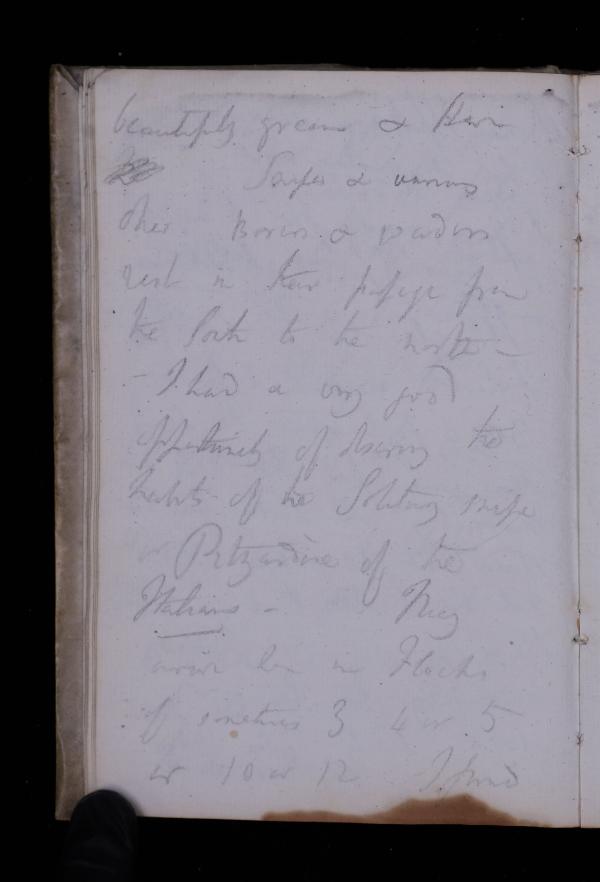 beautifully green & Here
Snipes & various
other Birds & waders
rest in their passage from
the South to the north -
- I had a very good
opportunity of observing the
habits of the Solitary snipe
or Pitzardine of the
Italians - They
arrive here in Flocks
of sometimes 3 4 or 5
or 10 or 12 I found